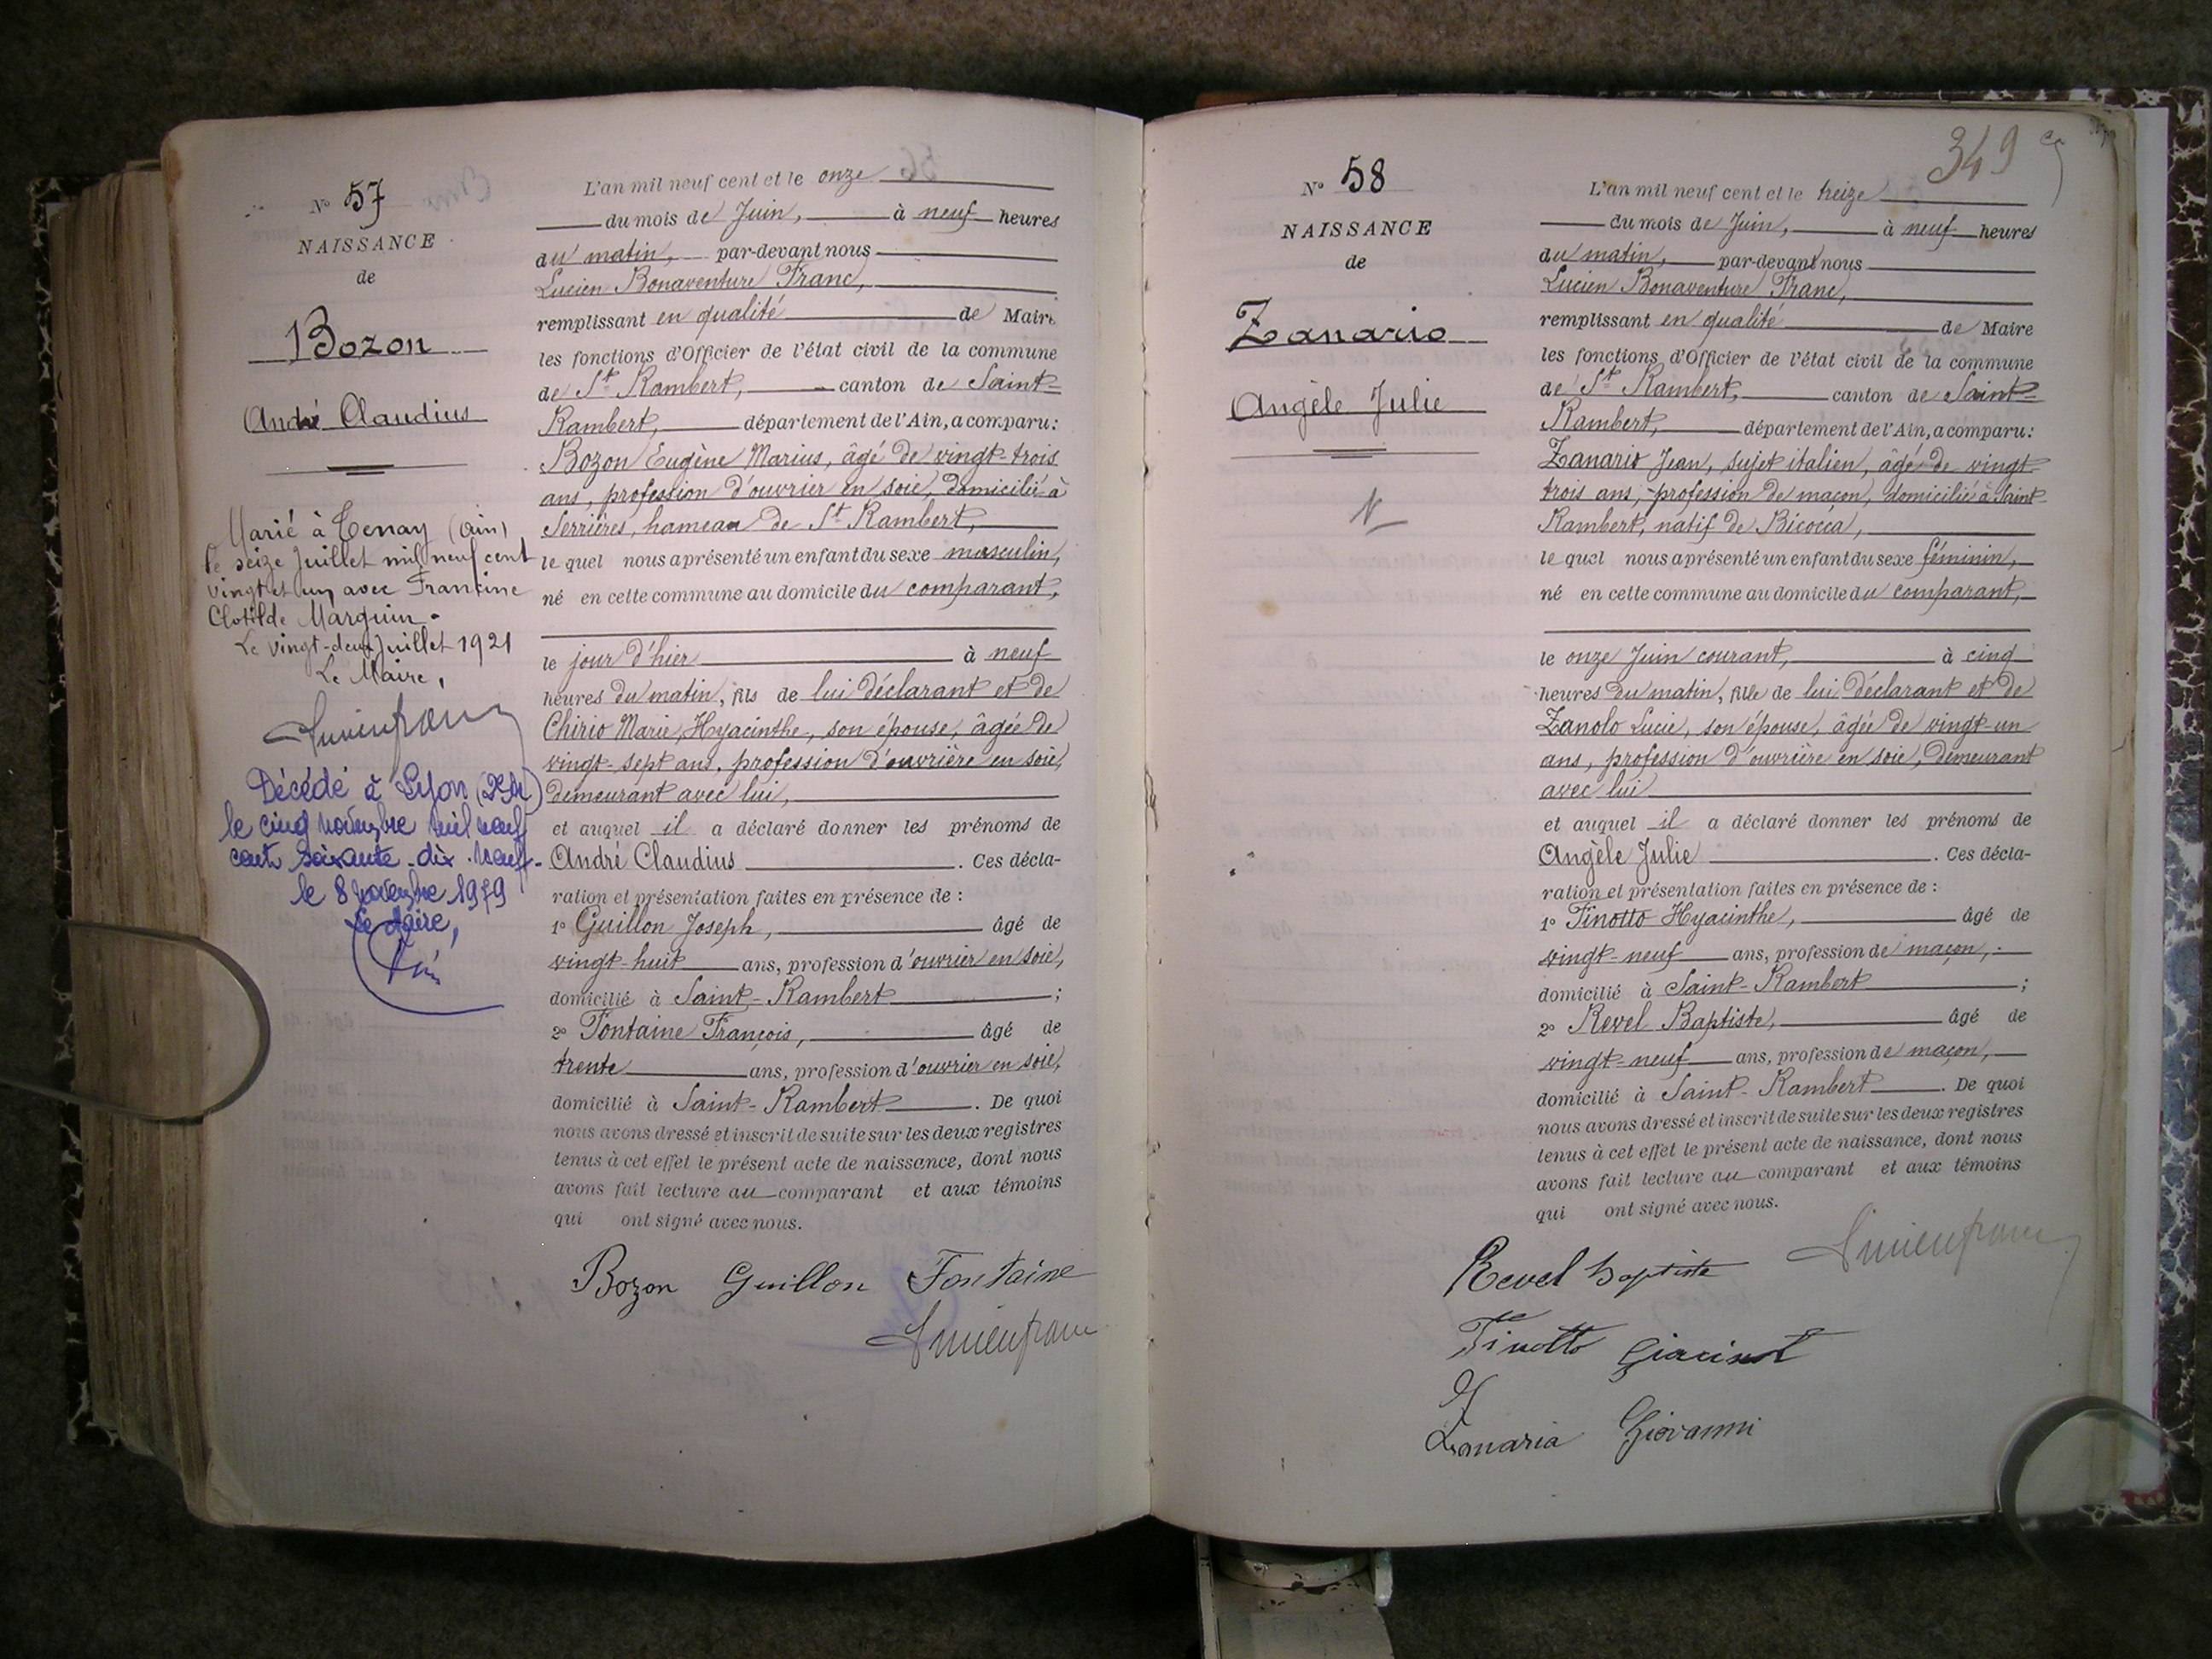 N° 57
NAISSANCE
de
Bozon
André Claudius
Marié à Tenay (Ain)
le seize Juillet mil neuf cent
vingt et un avec Francine
Clotilde Marguin.
Le vingt-deux Juillet 1921
Le Maire,
Décédé à Lyon
le cinq novembre mil neuf
cent soixante-dix-neuf.
le 8 novembre 1979
Le Maire,
L'an mil neuf cent et le onze
du mois de Juin, à neuf heures
du matin, par-devant nous
Lucien Bonaventure Franc,
remplissant en qualité de Maire
les fonctions d'Officier de l'état civil de la commune
de St Rambert, canton de Saint-
Rambert, département de l'Ain, a comparu:
Bozon Eugène Marius, âgé de vingt-trois
ans, profession d'ouvrier en soie, domicilié à
Serrières, hameau de St Rambert,
lequel nous a présenté un enfant du sexe masculin,
né en cette commune au domicile du comparant,
le jour d'hier à neuf
heures du matin, fils de lui déclarant et de
Chirio Marie, Hyacinthe, son épouse, âgée de
vingt-sept ans, profession d'ouvrière en soie,
demeurant avec lui,
et auquel il a déclaré donner les prénoms de
André Claudius. Ces décla-
ration et présentation faites en présence de :
1° Guillon Joseph, âgé de
vingt-huit ans, profession d'ouvrier en soie,
domicilié à Saint-Rambert ;
2° Fontaine François, âgé de
trente ans, profession d'ouvrier en soie,
domicilié à Saint-Rambert. De quoi
nous avons dressé et inscrit de suite sur les deux registres
tenus à cet effet le présent acte de naissance, dont nous
avons fait lecture au comparant et aux témoins
qui ont signé avec nous.
Bozon Guillon Fontaine
Lucien franc
349
N° 58
NAISSANCE
de
Zanario
Angèle Julie
N
L'an mil neuf cent et le treize
du mois de Juin, à neuf heures
du matin, par-devant nous
Lucien Bonaventure Franc,
remplissant en qualité de Maire
les fonctions d'Officier de l'état civil de la commune
de St Rambert, canton de Saint-
Rambert, département de l'Ain, a comparu:
Zanario Jean, sujet italien, âgé de vingt
trois ans, profession de maçon, domicilié à Saint-
Rambert, natif de Bicocca,
lequel nous a présenté un enfant du sexe féminin,
né en cette commune au domicile du comparant,
le onze Juin courant, à cinq
heures du matin, fille de lui déclarant et de
Zanolo Lucie, son épouse, âgée de vingt-un
ans, profession d'ouvrière en soie, demeurant
avec lui
et auquel il a déclaré donner les prénoms de
Angèle Julie. Ces décla-
ration et présentation faites en présence de :
1° Finotto Hyacinthe, âgé de
vingt-neuf ans, profession de maçon,
domicilié à Saint-Rambert ;
2° Revel Baptiste, âgé de
vingt-neuf ans, profession de maçon,
domicilié à Saint-Rambert. De quoi
nous avons dressé et inscrit de suite sur les deux registres
tenus à cet effet le présent acte de naissance, dont nous
avons fait lecture au comparant et aux témoins
qui ont signé avec nous.
Revel Baptiste Lucien franc
Finotto Giacint
Zanaria Giovanni